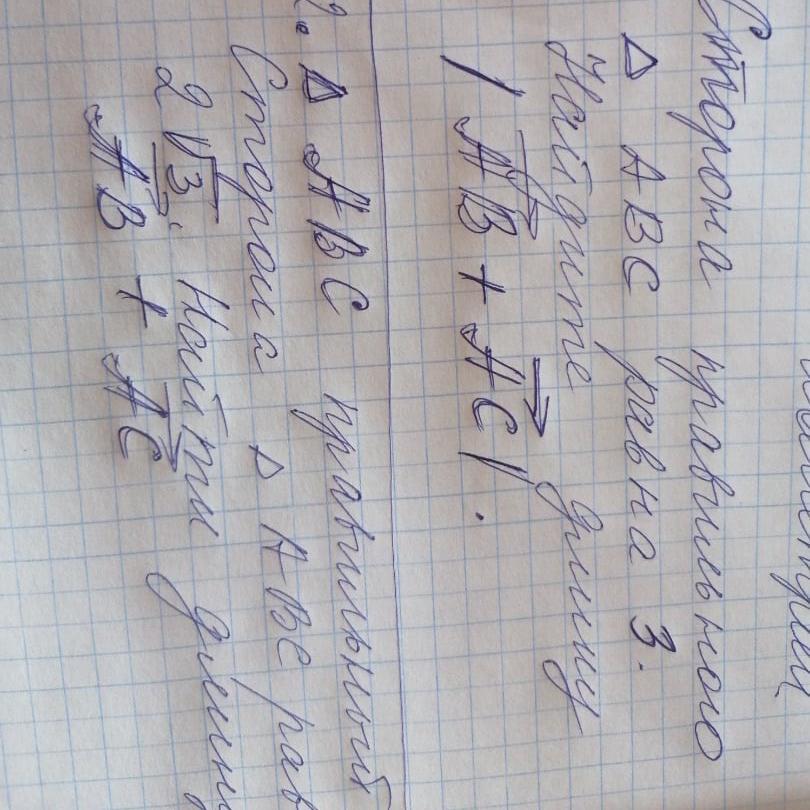 Сторона правильного
△ ABC равна 3.
Найдите длину
|AB + AC|.
2. △ ABC правильный
Сторона △ ABC рав
2√3. Найти длин
AB + AC